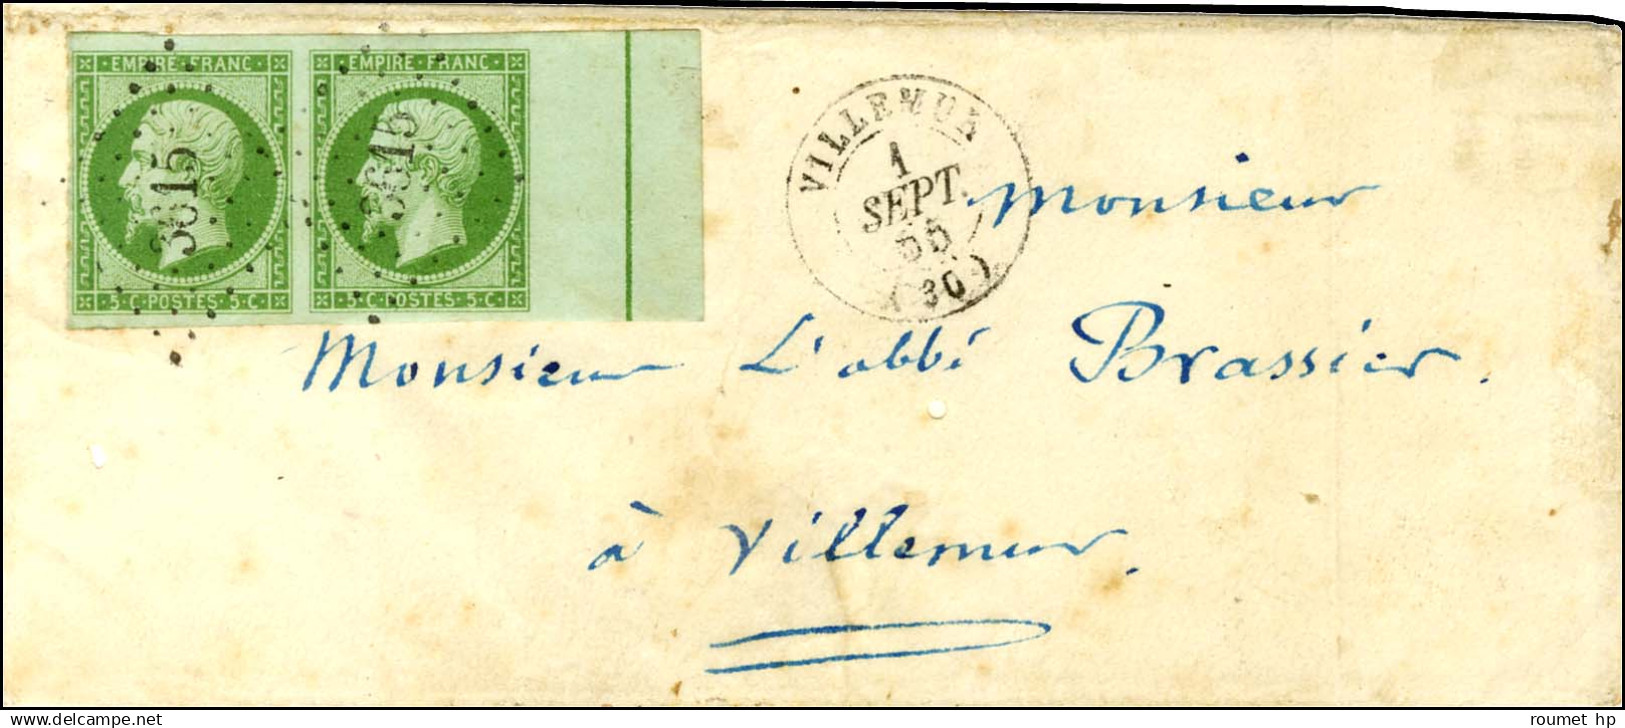 EMPIRE · FRANC ·
EMPIRE · FRANC ·
3615
3615
5 · C · POSTES · 5 · C ·
5 · C · POSTES · 5 · C ·
VILLEMUR
1
SEPT.
55
(30)
Monsieur
Monsieur L'abbé Brassier.
à Villemur.
www.delcampe.net
roumet_hp